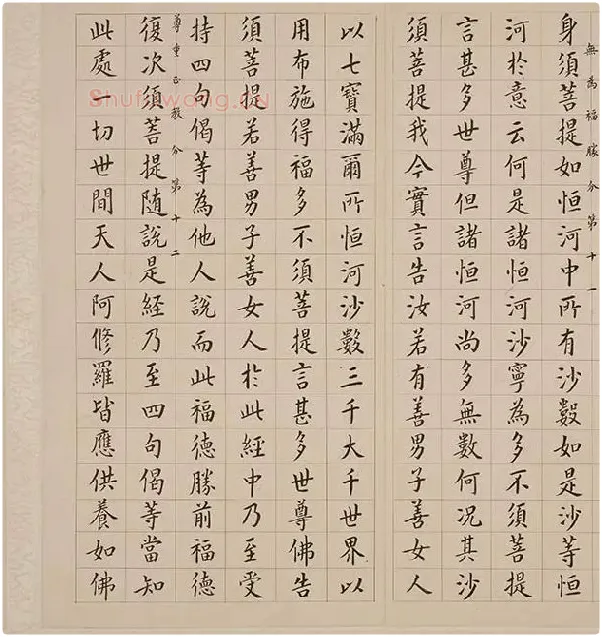 無為福勝分第十一
身須菩提如恒河中所有沙數如是沙等恒
河於意云何是諸恒河沙寧為多不須菩提
言甚多世尊但諸恒河尚多無數何況其沙
須菩提我今實言告汝若有善男子善女人
以七寶滿爾所恒河沙數三千大千世界以
用布施得福多不須菩提言甚多世尊佛告
須菩提若善男子善女人於此經中乃至受
持四句偈等為他人說而此福德勝前福德
尊重正教分第十二
復次須菩提隨說是經乃至四句偈等當知
此處一切世間天人阿修羅皆應供養如佛